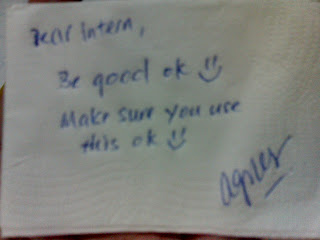 Dear Intern,
Be good ok
Make sure you use
this ok
agnes